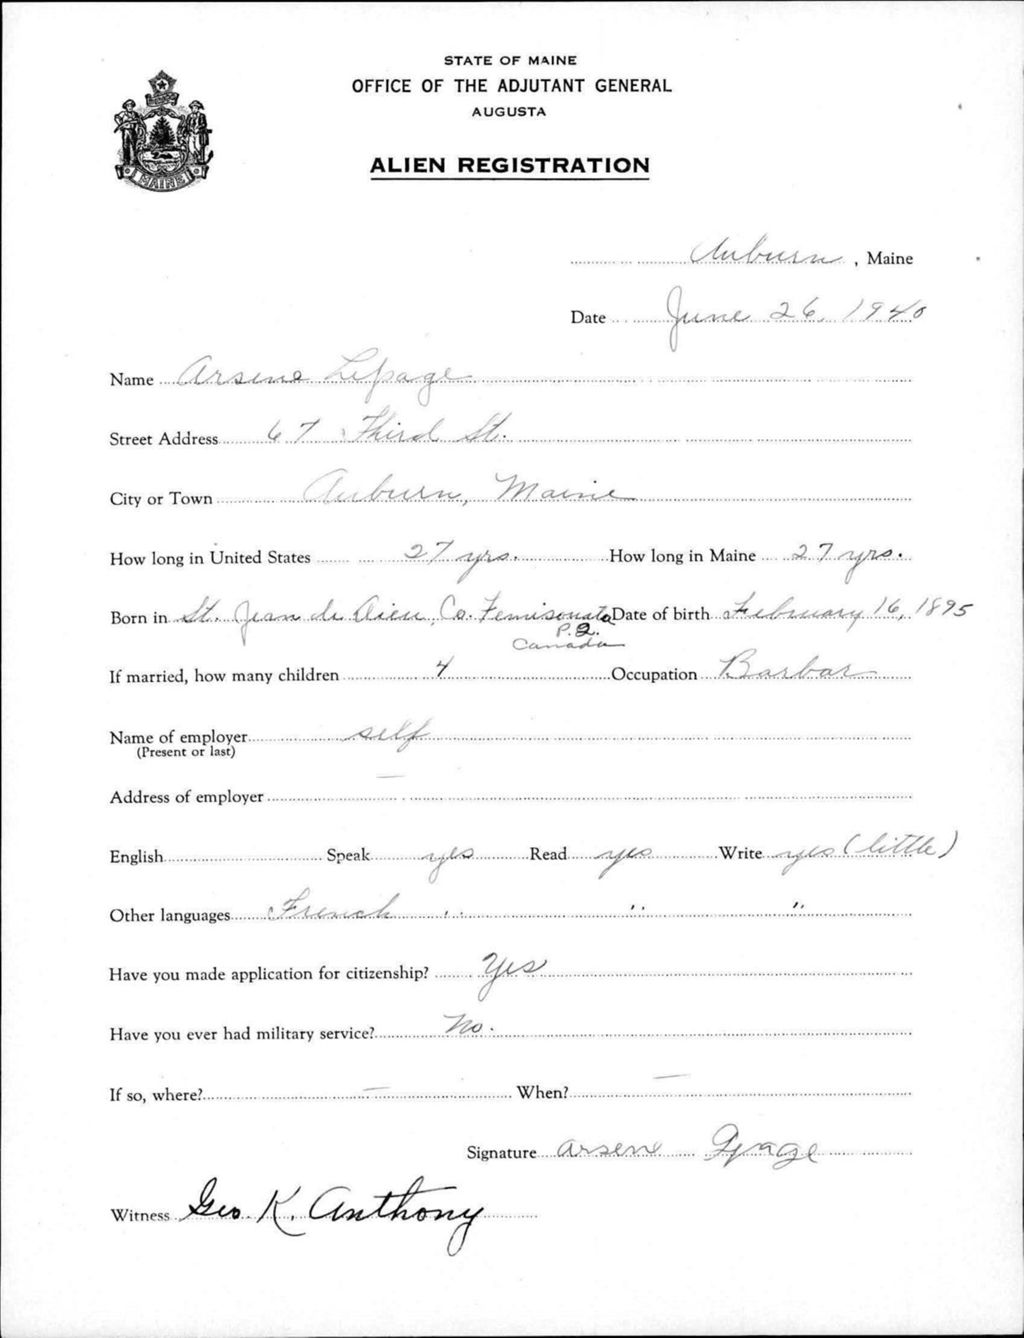 STATE OF MAINE
OFFICE OF THE ADJUTANT GENERAL
AUGUSTA
ALIEN REGISTRATION
MAINE
Auburn, Maine
Date June 26, 1940
Name Arsene Lepage
Street Address 67 Third St.
City or Town Auburn, Maine
How long in United States 27 yrs. How long in Maine 27 yrs.
Born in St. Jean de Dieu, Co. Temisouata Date of birth February 16, 1895
P.Q.
Canada
If married, how many children 4 Occupation Barbar
Name of employer self
(Present or last)
Address of employer —
English Speak yes Read yes Write yes (little)
Other languages French " " "
Have you made application for citizenship? Yes
Have you ever had military service? No.
If so, where? — When? —
Signature Arsene Lepage
Witness Geo. K. Anthony